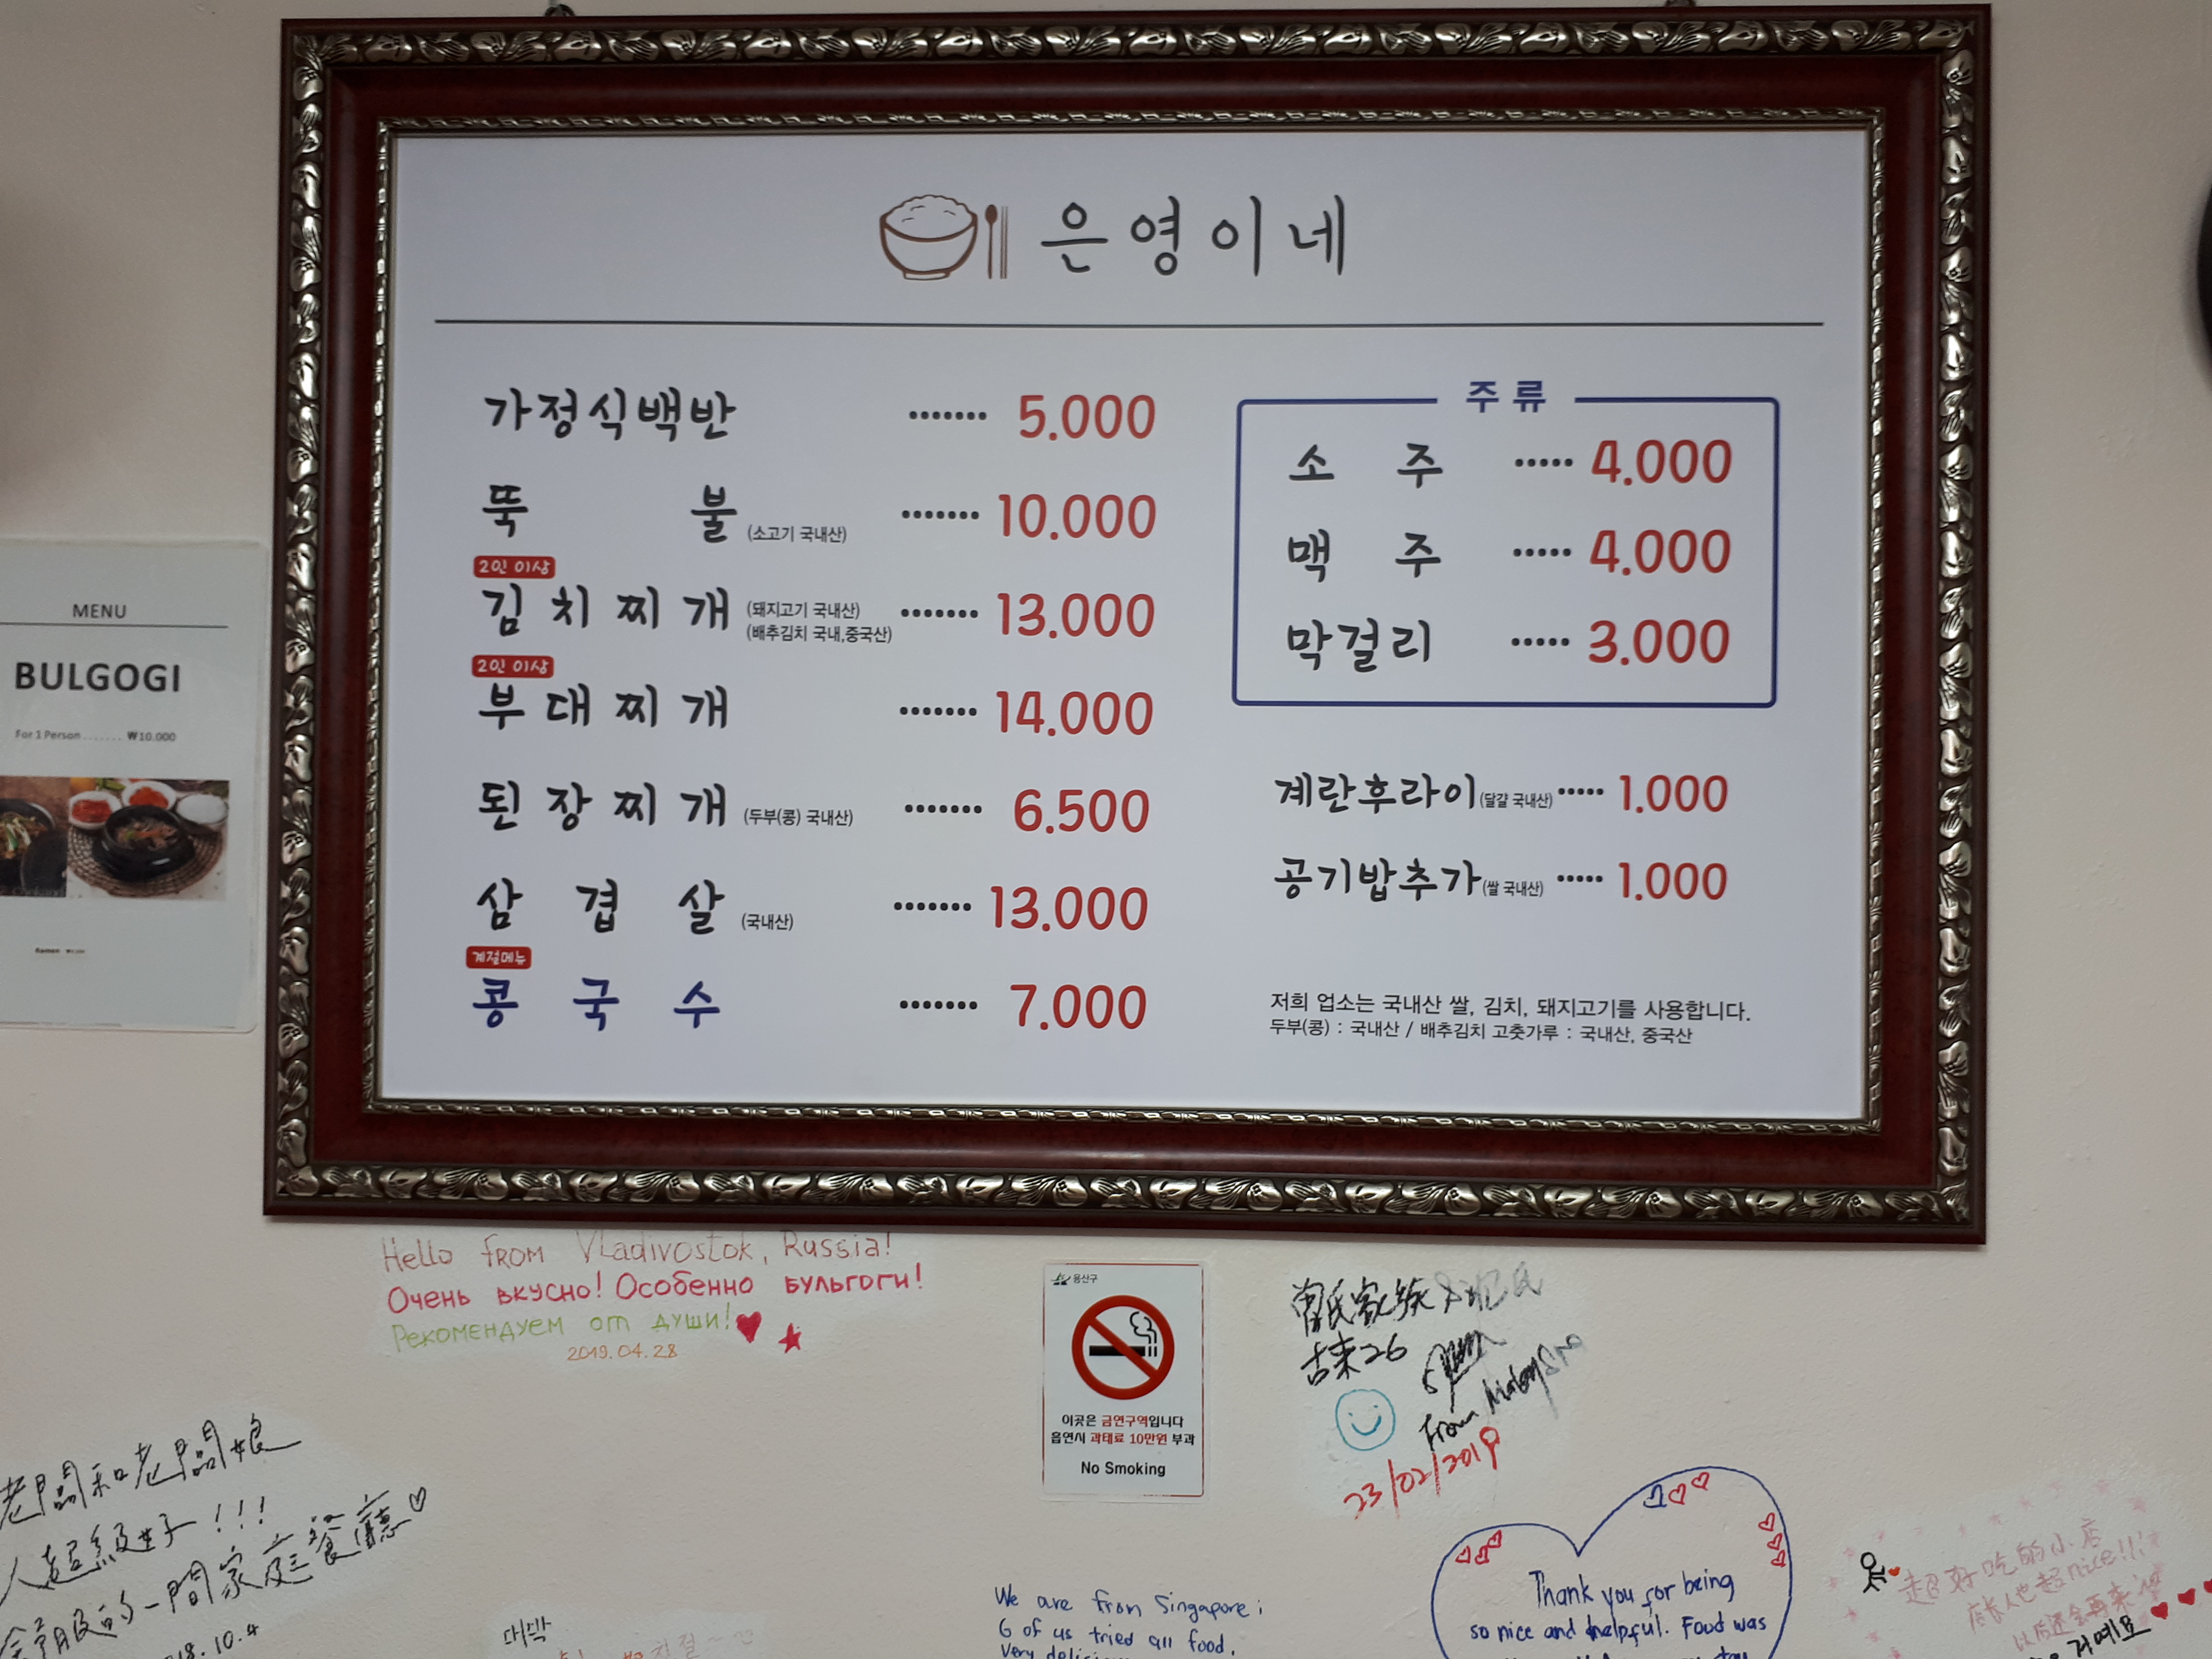 은영이네
가정식백반 ······· 5.000
뚝 불 (소고기 국내산) ······· 10.000
2인 이상
김치찌개 (돼지고기 국내산) (배추김치 국내,중국산) ······· 13.000
2인 이상
부대찌개 ······· 14.000
된장찌개 (두부(콩) 국내산) ······· 6.500
삼겹살 (국내산) ······· 13.000
계절메뉴
콩국수 ······· 7.000
주류
소 주 ····· 4.000
맥 주 ····· 4.000
막걸리 ····· 3.000
계란후라이(달걀 국내산) ····· 1.000
공기밥추가(쌀 국내산) ····· 1.000
저희 업소는 국내산 쌀, 김치, 돼지고기를 사용합니다.
두부(콩) : 국내산 / 배추김치 고춧가루 : 국내산, 중국산
MENU
BULGOGI
For 1 Person ....... ₩10.000
Ramen
Hello from Vladivostok, Russia!
Очень вкусно! Особенно бульгоги!
Рекомендуем от души!
2019.04.28
용산구
이곳은 금연구역입니다
흡연시 과태료 10만원 부과
No Smoking
曾氏家族
古来26
From Malaysia
23/02/2019
老闆和老闆娘
人超級好!!!
舒服的一間家庭餐廳♡
18.10.4
대박
We are from Singapore;
6 of us tried all food,
Very
Thank you for being
so nice and helpful. Food was
超好吃的小店
店长人也超nice!!!
以后还会再来
거예요